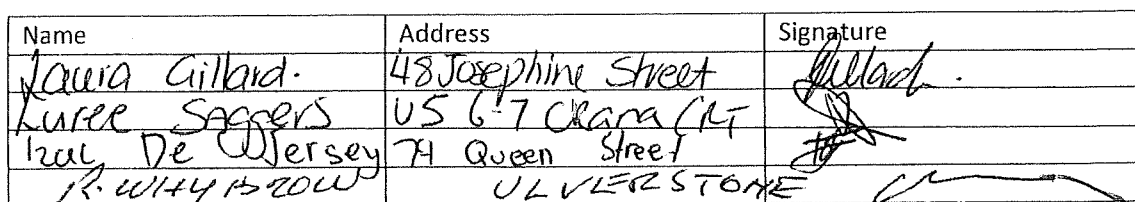 Name Address Signature
Laura Gillard. 48 Josephine Street Gillard.
Luree Saggers U5 6-7 CRT
De Jersey 74 Queen Street
R. WHYBROW ULVERSTONE